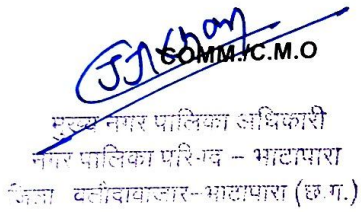 COMM./C.M.O
मुख्य नगर पालिका अधिकारी
नगर पालिका परिषद – भाटापारा
जिला बलौदाबाजार-भाटापारा (छ.ग.)